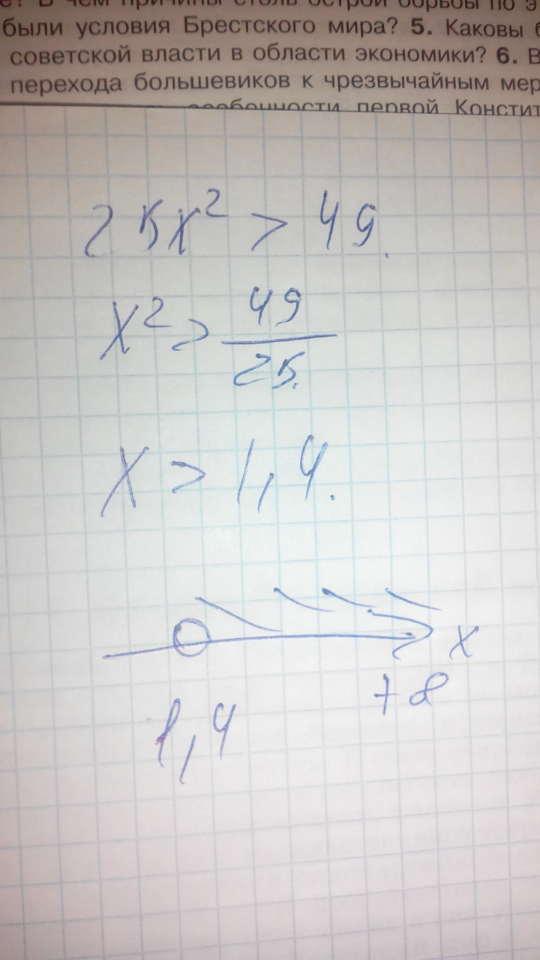 е? В чем причины столь острой борьбы по
были условия Брестского мира? 5. Каковы б
советской власти в области экономики? 6. В
перехода большевиков к чрезвычайным мер
особенности первой Констит
25x² > 49.
x² > 49/25.
x > 1,4.
x
1,4
+∞